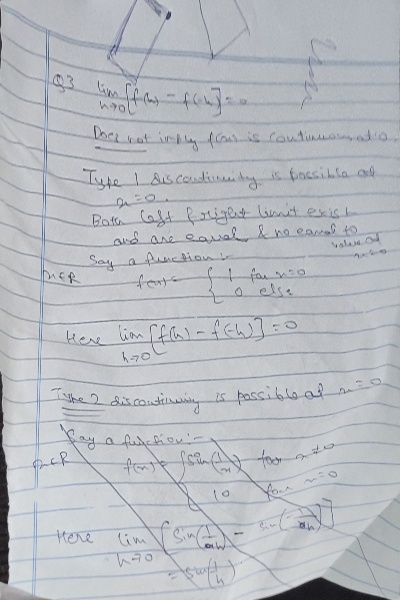 Q3 lim h→0 [f(h) - f(-h)] = 0
Does not imply f(x) is continuous at 0.
Type 1 discontinuity is possible at
x=0.
Both left & right limit exist
and are equal & no equal to
value at
x=0
Say a function :-
x∈R f(x) = { 1 for x=0
0 else
Here lim h→0 [f(h) - f(-h)] = 0
Type 2 discontinuity is possible at x=0
Say a function :-
x∈R f(x) = { sin(1/x) for x≠0
10 for x=0
Here lim h→0 [ sin(1/h) - sin(-1/h) ]
= sin(1/h)